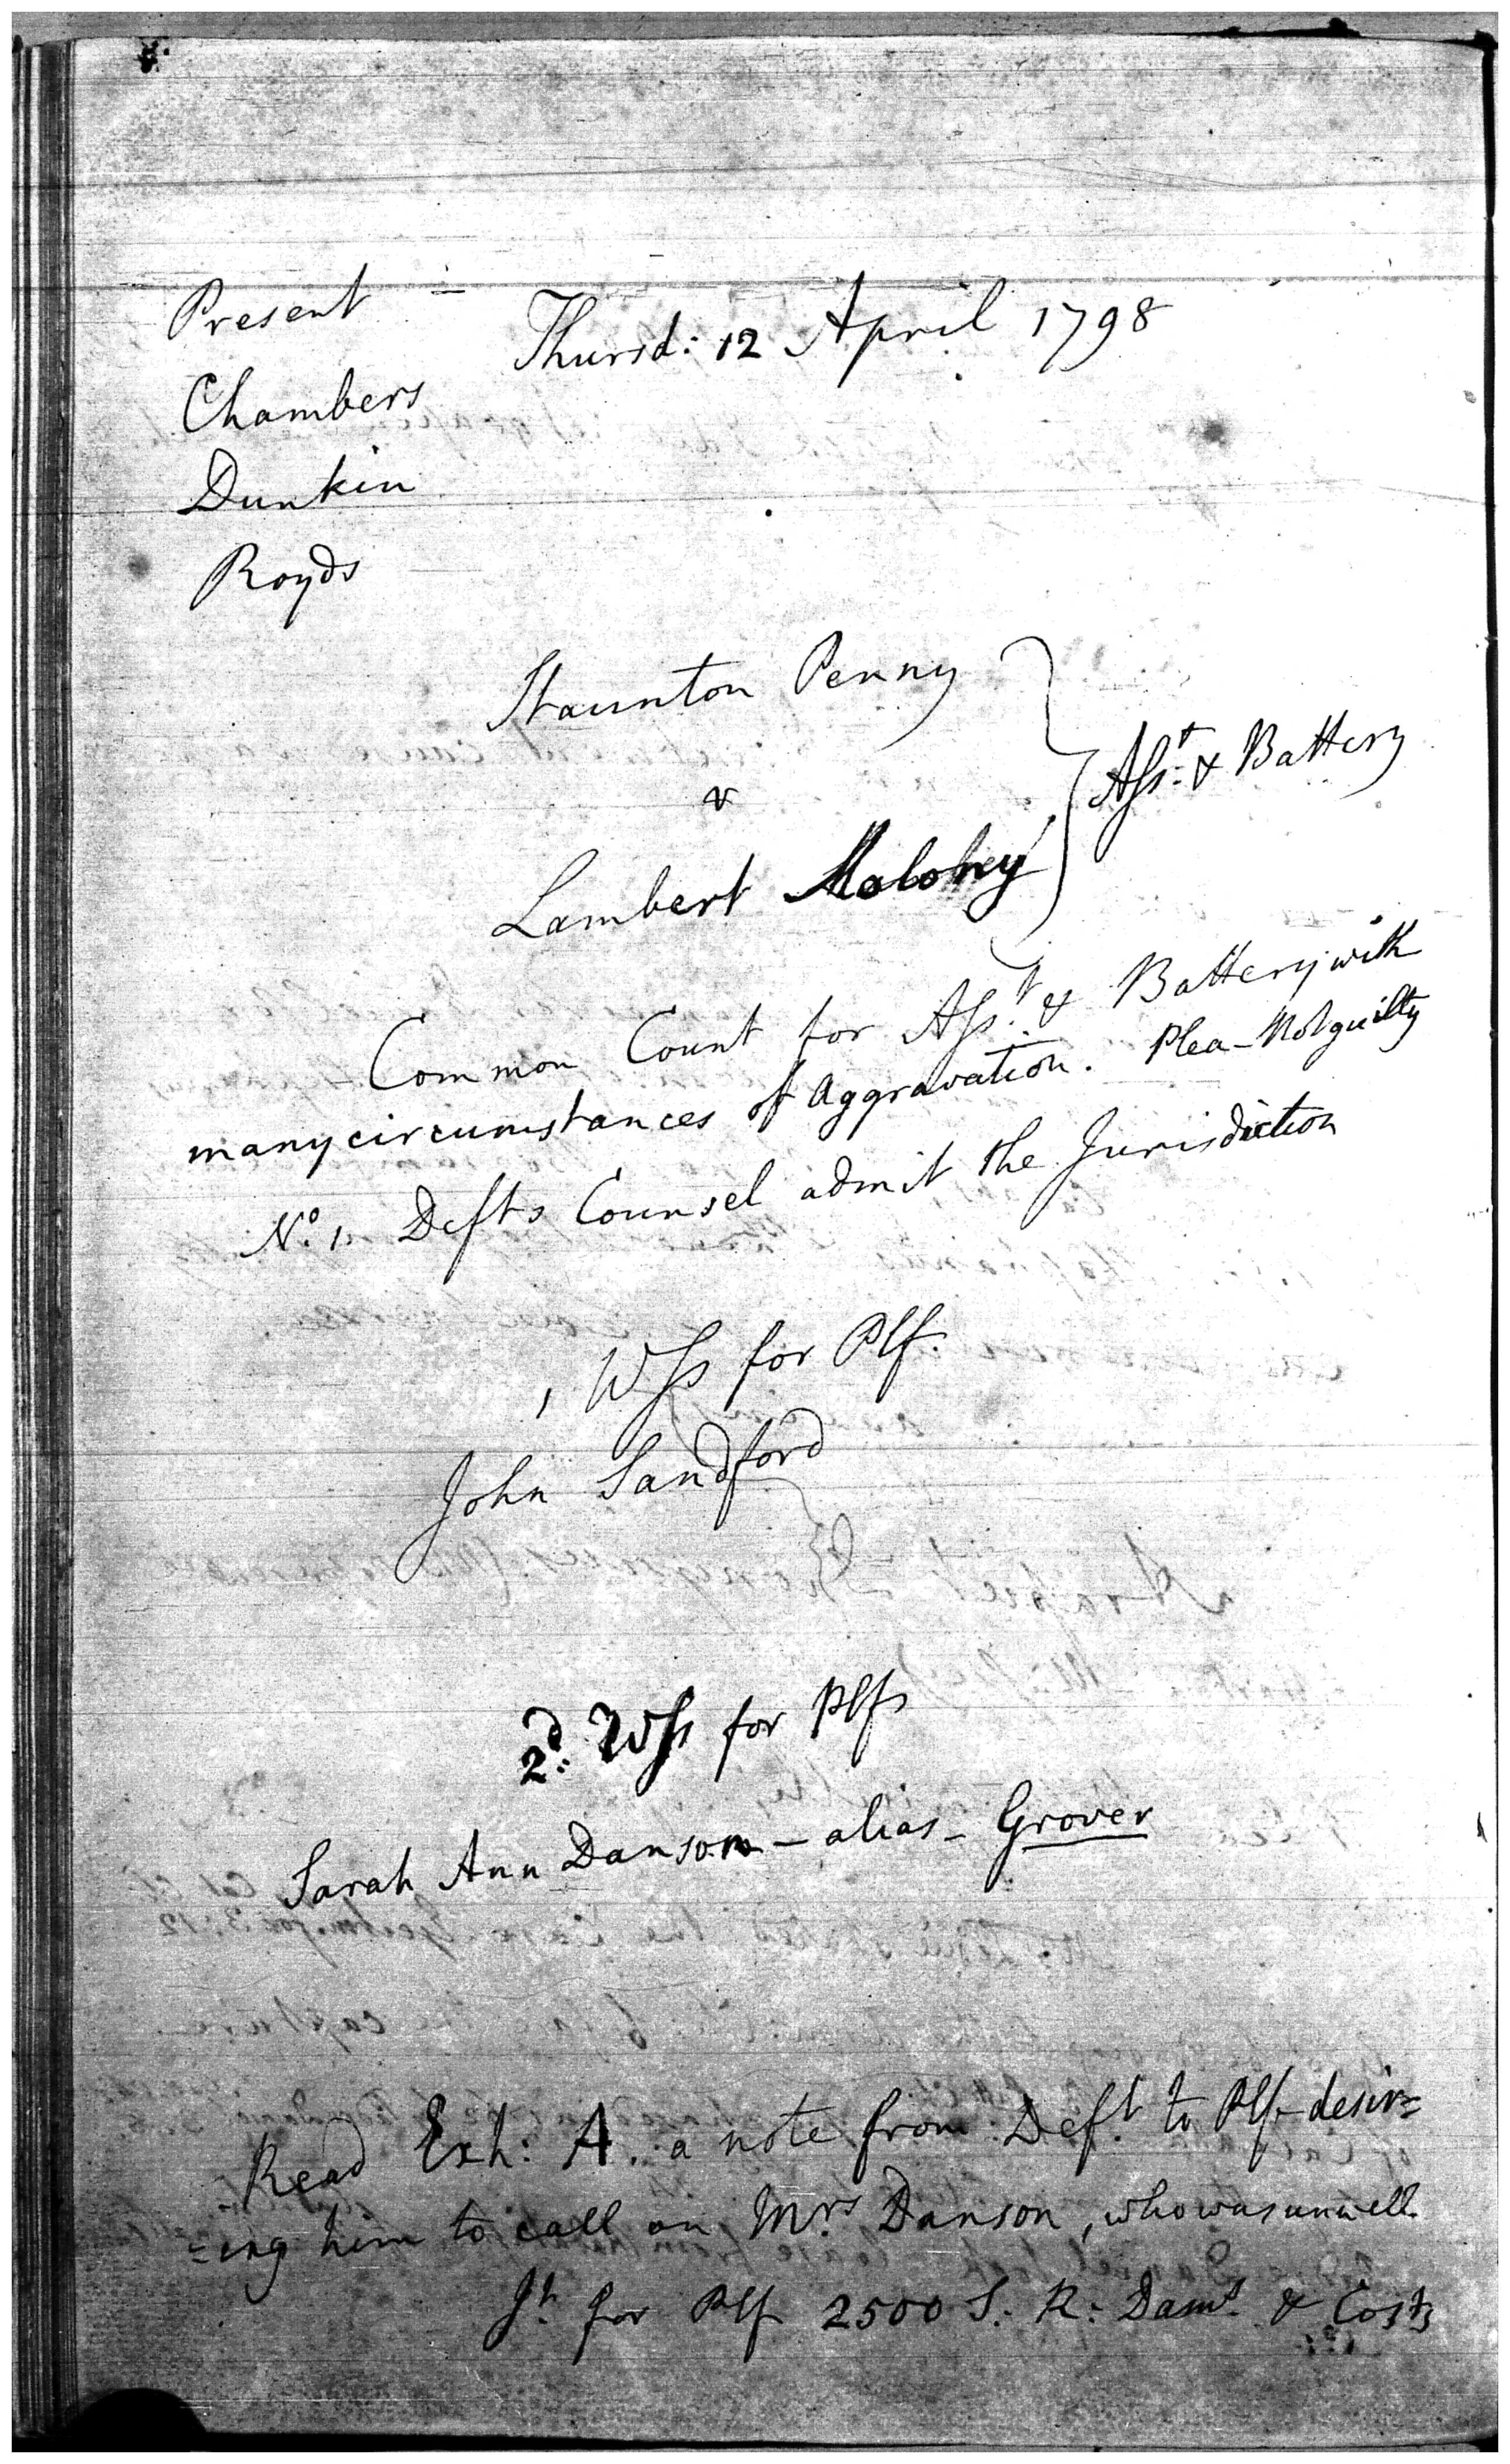 Present
Thursd: 12 April 1798
Chambers
Dunkin
Royds
Staunton Penny
v
Lambert Molony
Asst: & Battery
Common Count for Asst: & Battery with
many circumstances of Aggravation. Plea - Not guilty
No: 1. Defts Counsel admit the Jurisdiction
1 Wss for Plf.
John Sandford
2d: Wss for Plfs
Sarah Ann Danson - alias - Grover
Read Exh: A. a note from Deft. to Plf - desir=
=ing him to call on Mrs Danson, who was unwell.
Jt. for Plf 2500 S. R: Dams. & Costs